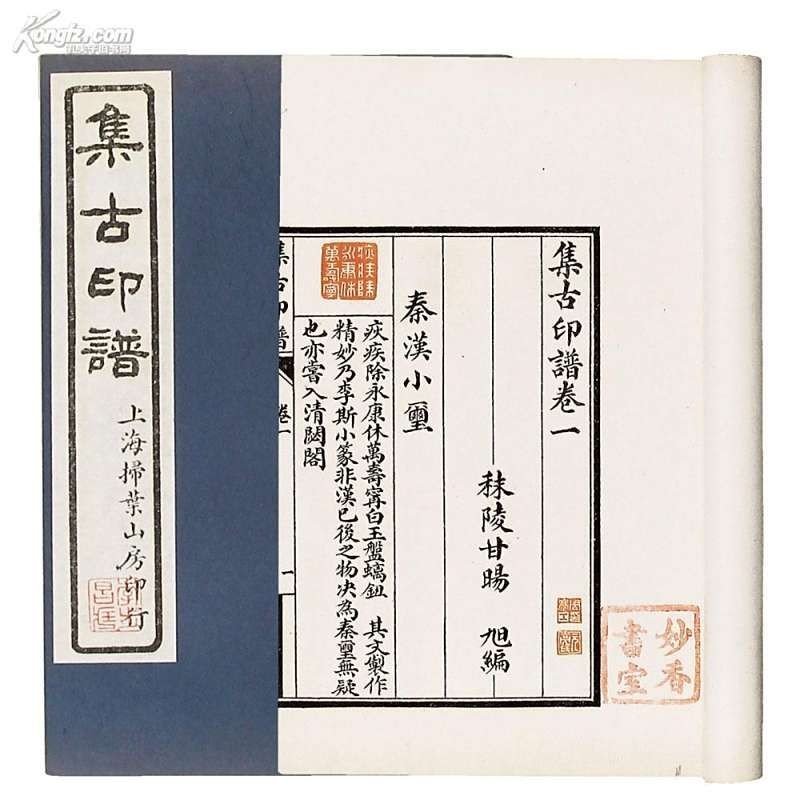 Kongfz.com
孔夫子旧书网
集古印譜
上海掃葉山房印行
集古印譜卷一
秣陵甘暘 旭編
秦漢小璽
疢疾除永康休萬壽寧
疢疾除永康休萬壽寗白玉盤螭鈕 其文製作
精妙乃李斯小篆非漢已後之物决為秦璽無疑
也亦嘗入清閟閣
集古印譜
卷一
一
妙香書室